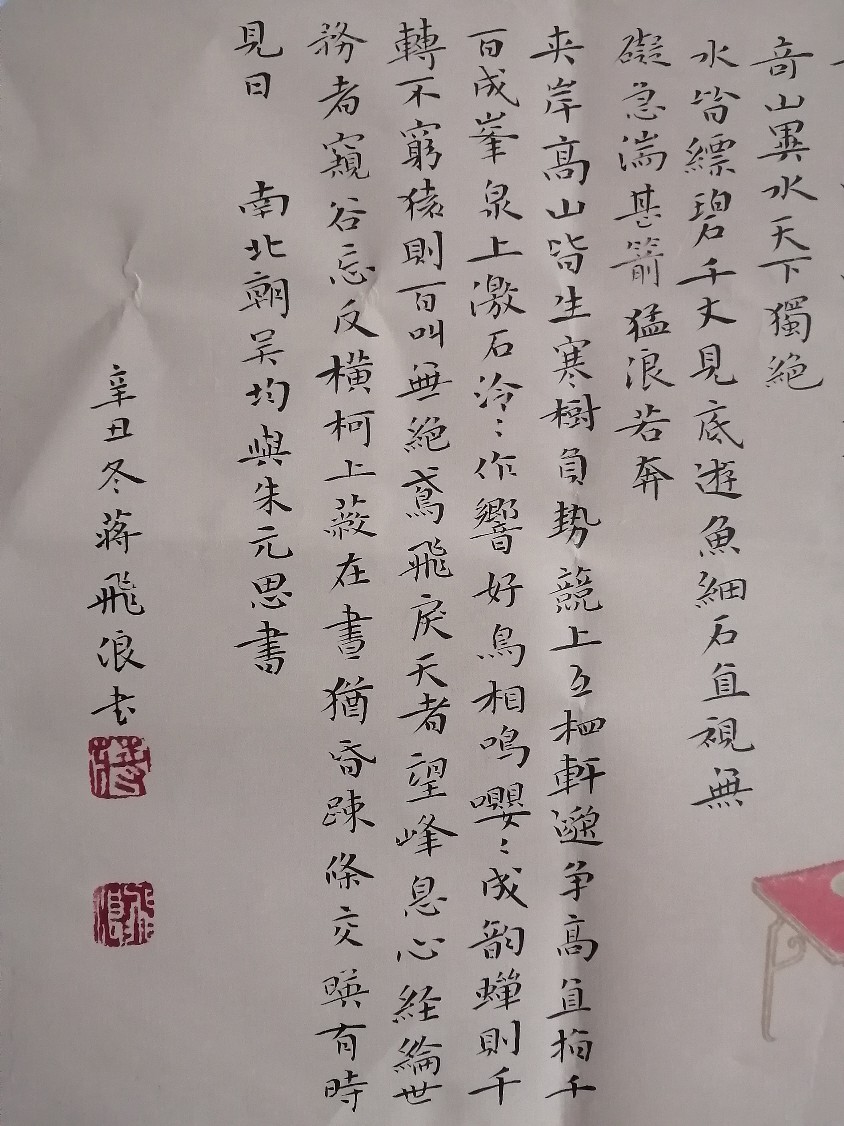 奇山異水天下獨絕
水皆縹碧千丈見底遊魚細石直視無
礙急湍甚箭猛浪若奔
夹岸高山皆生寒樹負勢競上互相軒邈争高直指千
百成峯泉上激石泠〻作響好鳥相鳴嚶〻成韵蟬則千
轉不窮猿則百叫無絕鳶飛戾天者望峰息心経綸世
務者窺谷忘反橫柯上蔽在晝猶昏疎條交暎有時
見日 南北朝吴均與朱元思書
辛丑冬蒋飛浪书
蒋
飛浪